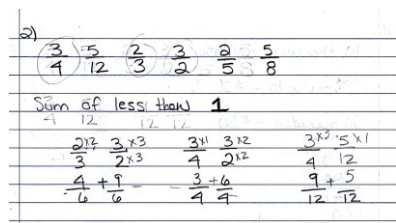 2)
3/4 5/12 2/3 3/2 2/5 5/8
Sum of less than 1
2×2/3 3×3/2×3 3×1/4 3×2/2×2 3×3/4 5×1/12
4/6 + 9/6 - 3/4 + 6/4 9/12 + 5/12